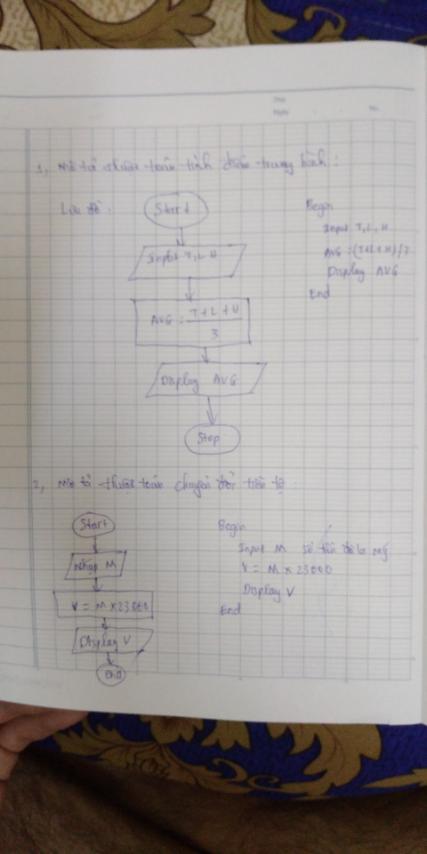 1, Mô tả thuật toán tính điểm trung bình:
Lưu đồ:
Start
Input T, L, H
AVG = T+L+H
3
Display AVG
Stop
Begin
Input T, L, H
AVG = (T+L+H)/3
Display AVG
End
2, Mô tả thuật toán chuyển đổi tiền tệ:
Start
Nhập M
V = M x 23000
Display V
End
Begin
Input M số tiền đô la mỹ
V = M x 23000
Display V
End